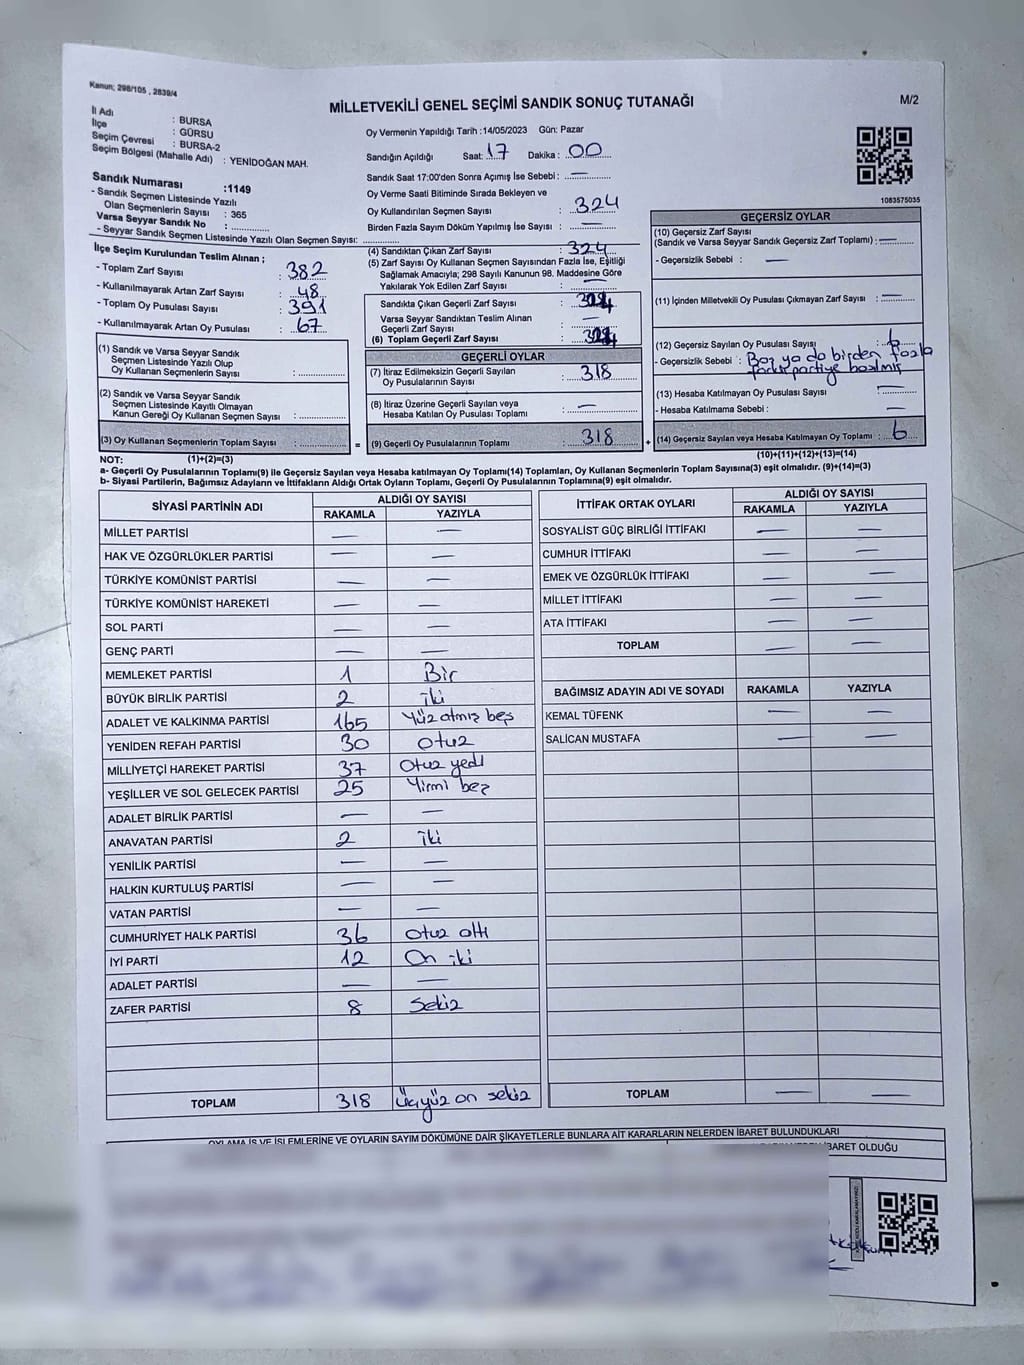 Kanun; 298/105 , 2839/4
MİLLETVEKİLİ GENEL SEÇİMİ SANDIK SONUÇ TUTANAĞI
M/2
İl Adı : BURSA
İlçe : GÜRSU
Seçim Çevresi : BURSA-2
Seçim Bölgesi (Mahalle Adı) : YENİDOĞAN MAH.
Sandık Numarası :1149
- Sandık Seçmen Listesinde Yazılı
Olan Seçmenlerin Sayısı : 365
Varsa Seyyar Sandık No :
- Seyyar Sandık Seçmen Listesinde Yazılı Olan Seçmen Sayısı:
İlçe Seçim Kurulundan Teslim Alınan ;
- Toplam Zarf Sayısı : 382
- Kullanılmayarak Artan Zarf Sayısı : 48
- Toplam Oy Pusulası Sayısı : 391
- Kullanılmayarak Artan Oy Pusulası : 67
(1) Sandık ve Varsa Seyyar Sandık
Seçmen Listesinde Yazılı Olup
Oy Kullanan Seçmenlerin Sayısı :
(2) Sandık ve Varsa Seyyar Sandık
Seçmen Listesinde Kayıtlı Olmayan
Kanun Gereği Oy Kullanan Seçmen Sayısı :
(3) Oy Kullanan Seçmenlerin Toplam Sayısı :
(1)+(2)=(3)
Oy Vermenin Yapıldığı Tarih :14/05/2023 Gün: Pazar
Sandığın Açıldığı Saat: 17 Dakika : 00
Sandık Saat 17:00'den Sonra Açımış İse Sebebi : —
Oy Verme Saati Bitiminde Sırada Bekleyen ve
Oy Kullandırılan Seçmen Sayısı : 324
Birden Fazla Sayım Döküm Yapılmış İse Sayısı : —
(4) Sandıktan Çıkan Zarf Sayısı : 324
(5) Zarf Sayısı Oy Kullanan Seçmen Sayısından Fazla İse, Eşitliği
Sağlamak Amacıyla; 298 Sayılı Kanunun 98. Maddesine Göre
Yakılarak Yok Edilen Zarf Sayısı : —
Sandıkta Çıkan Geçerli Zarf Sayısı :
Varsa Seyyar Sandıktan Teslim Alınan
Geçerli Zarf Sayısı : —
(6) Toplam Geçerli Zarf Sayısı :
GEÇERLİ OYLAR
(7) İtiraz Edilmeksizin Geçerli Sayılan
Oy Pusulalarının Sayısı : 318
(8) İtiraz Üzerine Geçerli Sayılan ve
Hesaba Katılan Oy Pusulası Toplamı : —
= (9) Geçerli Oy Pusulalarının Toplamı : 318
1083575035
GEÇERSİZ OYLAR
(10) Geçersiz Zarf Sayısı
(Sandık ve Varsa Seyyar Sandık Geçersiz Zarf Toplamı) : —
- Geçersizlik Sebebi : —
(11) İçinden Milletvekili Oy Pusulası Çıkmayan Zarf Sayısı : —
(12) Geçersiz Sayılan Oy Pusulası Sayısı : 6
- Geçersizlik Sebebi : Boş ya da birden fazla
partiye basılmış
(13) Hesaba Katılmayan Oy Pusulası Sayısı : —
- Hesaba Katılmama Sebebi : —
+ (14) Geçersiz Sayılan veya Hesaba Katılmayan Oy Toplamı : 6
(10)+(11)+(12)+(13)=(14)
NOT:
a- Geçerli Oy Pusulalarının Toplamı(9) ile Geçersiz Sayılan veya Hesaba katılmayan Oy Toplamı(14) Toplamları, Oy Kullanan Seçmenlerin Toplam Sayısına(3) eşit olmalıdır. (9)+(14)=(3)
b- Siyasi Partilerin, Bağımsız Adayların ve İttifakların Aldığı Ortak Oyların Toplamı, Geçerli Oy Pusulalarının Toplamına(9) eşit olmalıdır.
SİYASİ PARTİNİN ADI ALDIĞI OY SAYISI
RAKAMLA YAZIYLA
MİLLET PARTİSİ — —
HAK VE ÖZGÜRLÜKLER PARTİSİ — —
TÜRKİYE KOMÜNİST PARTİSİ — —
TÜRKİYE KOMÜNİST HAREKETİ — —
SOL PARTİ — —
GENÇ PARTİ — —
MEMLEKET PARTİSİ 1 Bir
BÜYÜK BİRLİK PARTİSİ 2 iki
ADALET VE KALKINMA PARTİSİ 165 Yüz atmış beş
YENİDEN REFAH PARTİSİ 30 otuz
MİLLİYETÇİ HAREKET PARTİSİ 37 Otuz yedi
YEŞİLLER VE SOL GELECEK PARTİSİ 25 Yirmi beş
ADALET BİRLİK PARTİSİ — —
ANAVATAN PARTİSİ 2 iki
YENİLİK PARTİSİ — —
HALKIN KURTULUŞ PARTİSİ — —
VATAN PARTİSİ — —
CUMHURİYET HALK PARTİSİ 36 otuz altı
İYİ PARTİ 12 On iki
ADALET PARTİSİ — —
ZAFER PARTİSİ 8 Sekiz
TOPLAM 318 Üçyüz on sekiz
İTTİFAK ORTAK OYLARI ALDIĞI OY SAYISI
RAKAMLA YAZIYLA
SOSYALİST GÜÇ BİRLİĞİ İTTİFAKI — —
CUMHUR İTTİFAKI — —
EMEK VE ÖZGÜRLÜK İTTİFAKI — —
MİLLET İTTİFAKI — —
ATA İTTİFAKI — —
TOPLAM — —
BAĞIMSIZ ADAYIN ADI VE SOYADI RAKAMLA YAZIYLA
KEMAL TÜFENK — —
SALİCAN MUSTAFA — —
TOPLAM — —
OYLAMA İŞ VE İŞLEMLERİNE VE OYLARIN SAYIM DÖKÜMÜNE DAİR ŞİKAYETLERLE BUNLARA AİT KARARLARIN NELERDEN İBARET BULUNDUKLARI
İBARET OLDUĞU